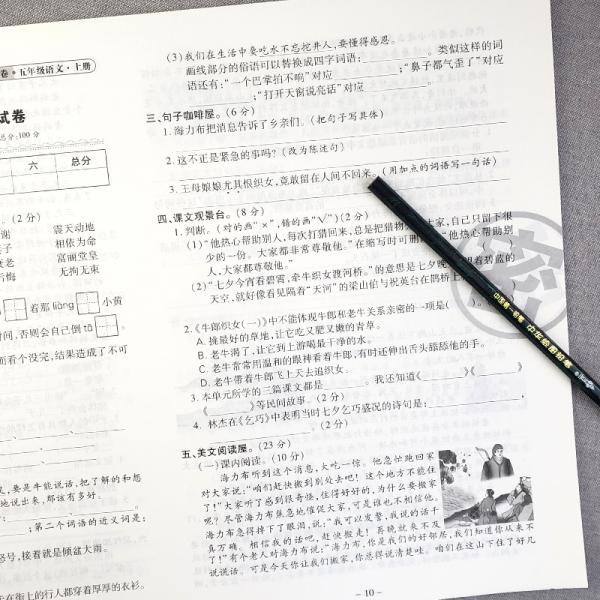 卷·五年级语文·上册
试卷
总分:100分
六 总分
(2分)
谢 震天动地
子 相依为命
老 富丽堂皇
悔 无拘无束
着那liàng 小黄
时间,否则会自己倒tā
面看个没完,结果造成了不可
,要是牛能说话,把了解的和想
地说出来,那该有多好。
;第二个词语的近义词是:
怒号,接着就是倾盆大雨。
在街上的行人都穿着厚厚的衣衫。
(3)我们在生活中要吃水不忘挖井人,要懂得感恩。
画线部分的俗语可以替换成四字词语:。类似这样的词
语还有:“一个巴掌拍不响”对应;“鼻子都气歪了”对应
;“打开天窗说亮话”对应。
三、句子咖啡屋。(6分)
1.海力布把消息告诉了乡亲们。(把句子写具体)
2.这不正是紧急的事吗?(改为陈述句)
3.王母娘娘尤其恨织女,竟敢留在人间不回来。(用加点的词语写一句话)
四、课文观景台。(8分)
1.判断。(对的画“×”,错的画“√”)(2分)
(1)“他热心帮助别人,每次打猎回来,总是把猎物大家,自己只留下很
少的一份。大家都非常尊敬他。”在缩写时可删他热心帮助别
人,大家都尊敬他。”()
(2)“七夕今宵看碧霄,牵牛织女渡河桥。”的意思是七夕晚望着碧蓝的
天空,就好像看见隔着“天河”的梁山伯与祝英台在鹊桥上
2.《牛郎织女(一)》中不能体现牛郎和老牛关系亲密的一项是()。
A.挑最好的草地,让它吃又肥又嫩的青草。
B.老牛渴了,让它到上游喝最干净的水。
C.老牛常常用温和的眼神看着牛郎,有时还伸出舌头舔舔他的手。
D.老牛带着牛郎飞上天去追织女。
3.本单元所学的三篇课文都是。我还知道《》《
》《》等民间故事。(2分)
4.林杰在《乞巧》中表明当时七夕乞巧盛况的诗句是:,
。(2分)
五、美文阅读屋。(23分)
(一)课内阅读。(10分)
海力布听到这个消息,大吃一惊。他急忙跑回家
对大家说:“咱们赶快搬到别处去吧!这个地方不能住
了!”大家听了感到很奇怪,住得好好的,为什么要搬家
呢?尽管海力布焦急地催促大家,可是谁也不相信他。
海力布急得掉下了眼泪,说:“我可以发誓,我说的话千
真万确。相信我的话吧,赶快搬走!再晚就来不及
了!”有个老人对海力布说:“海力布,你是我们的好邻居,我们知道你从来不
说谎话。可是今天你让我们搬家,你总得说清楚哇。咱们在这山下住了好几
-10-
密
中国第一铅笔